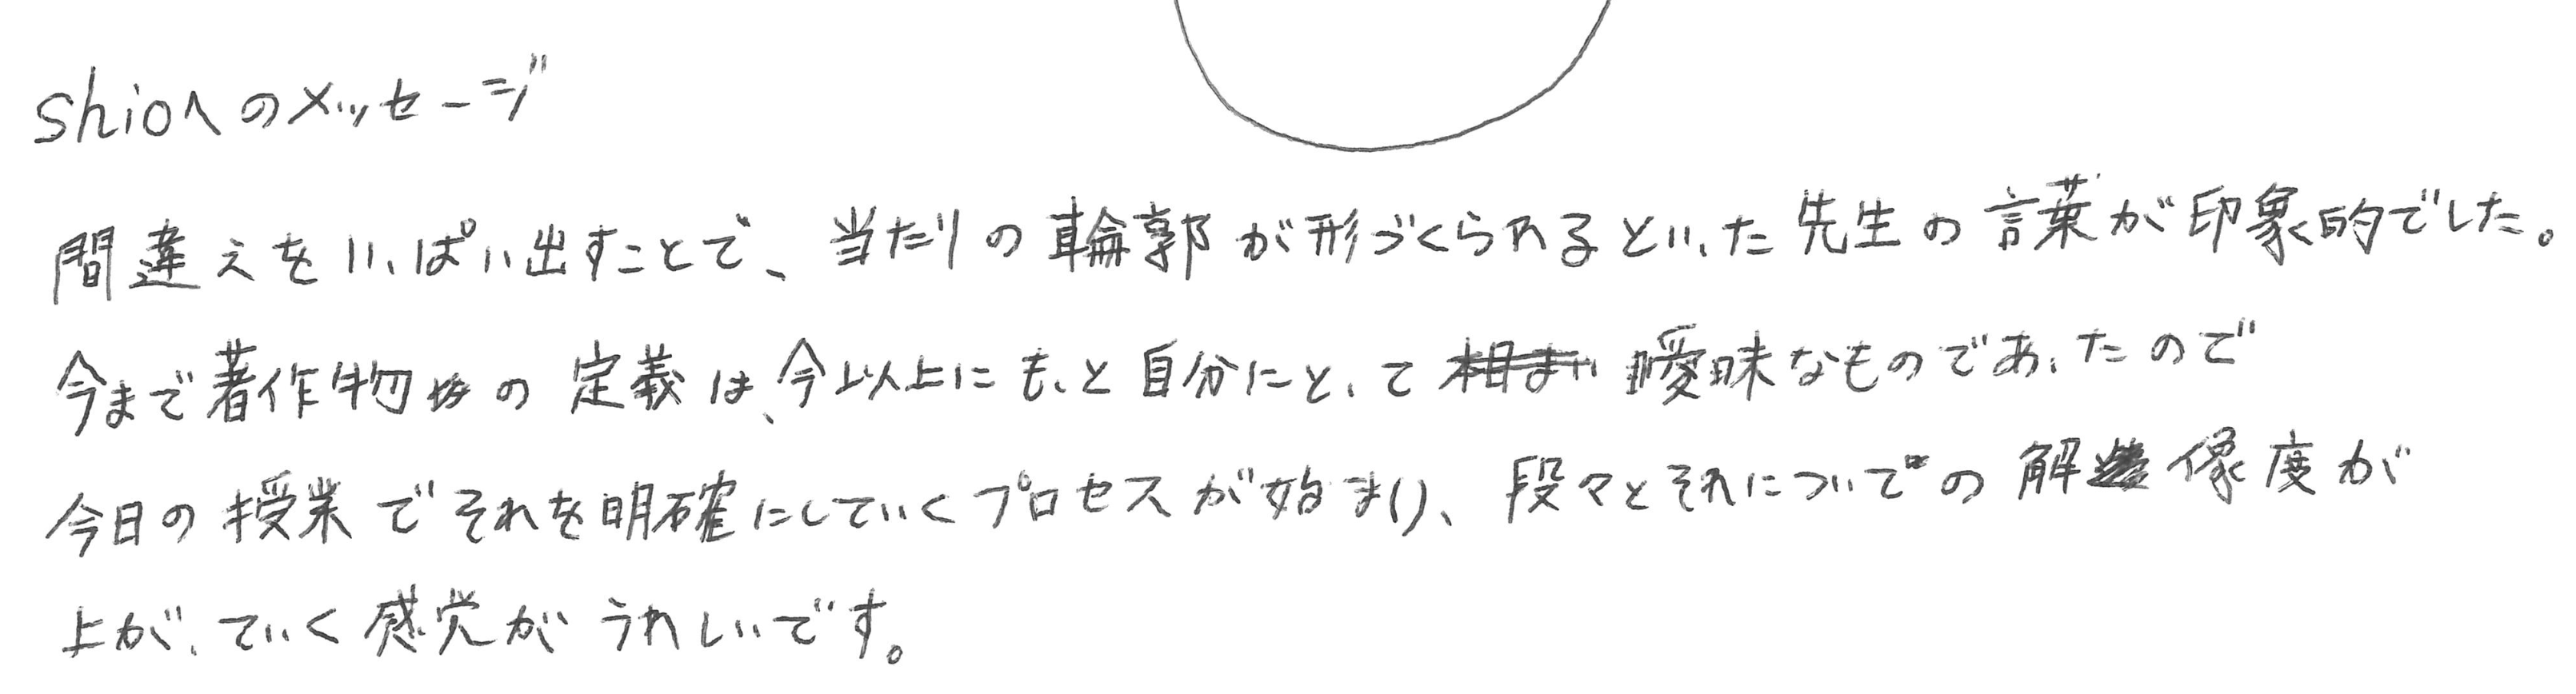 shioへのメッセージ
間違えをいっぱい出すことで、当たりの輪郭が形づくられるといった先生の言葉が印象的でした。
今まで著作物の定義は、今以上にもっと自分にとって曖昧なものであったので
今日の授業でそれを明確にしていくプロセスが始まり、段々とそれについての解像度が
上がっていく感覚がうれしいです。